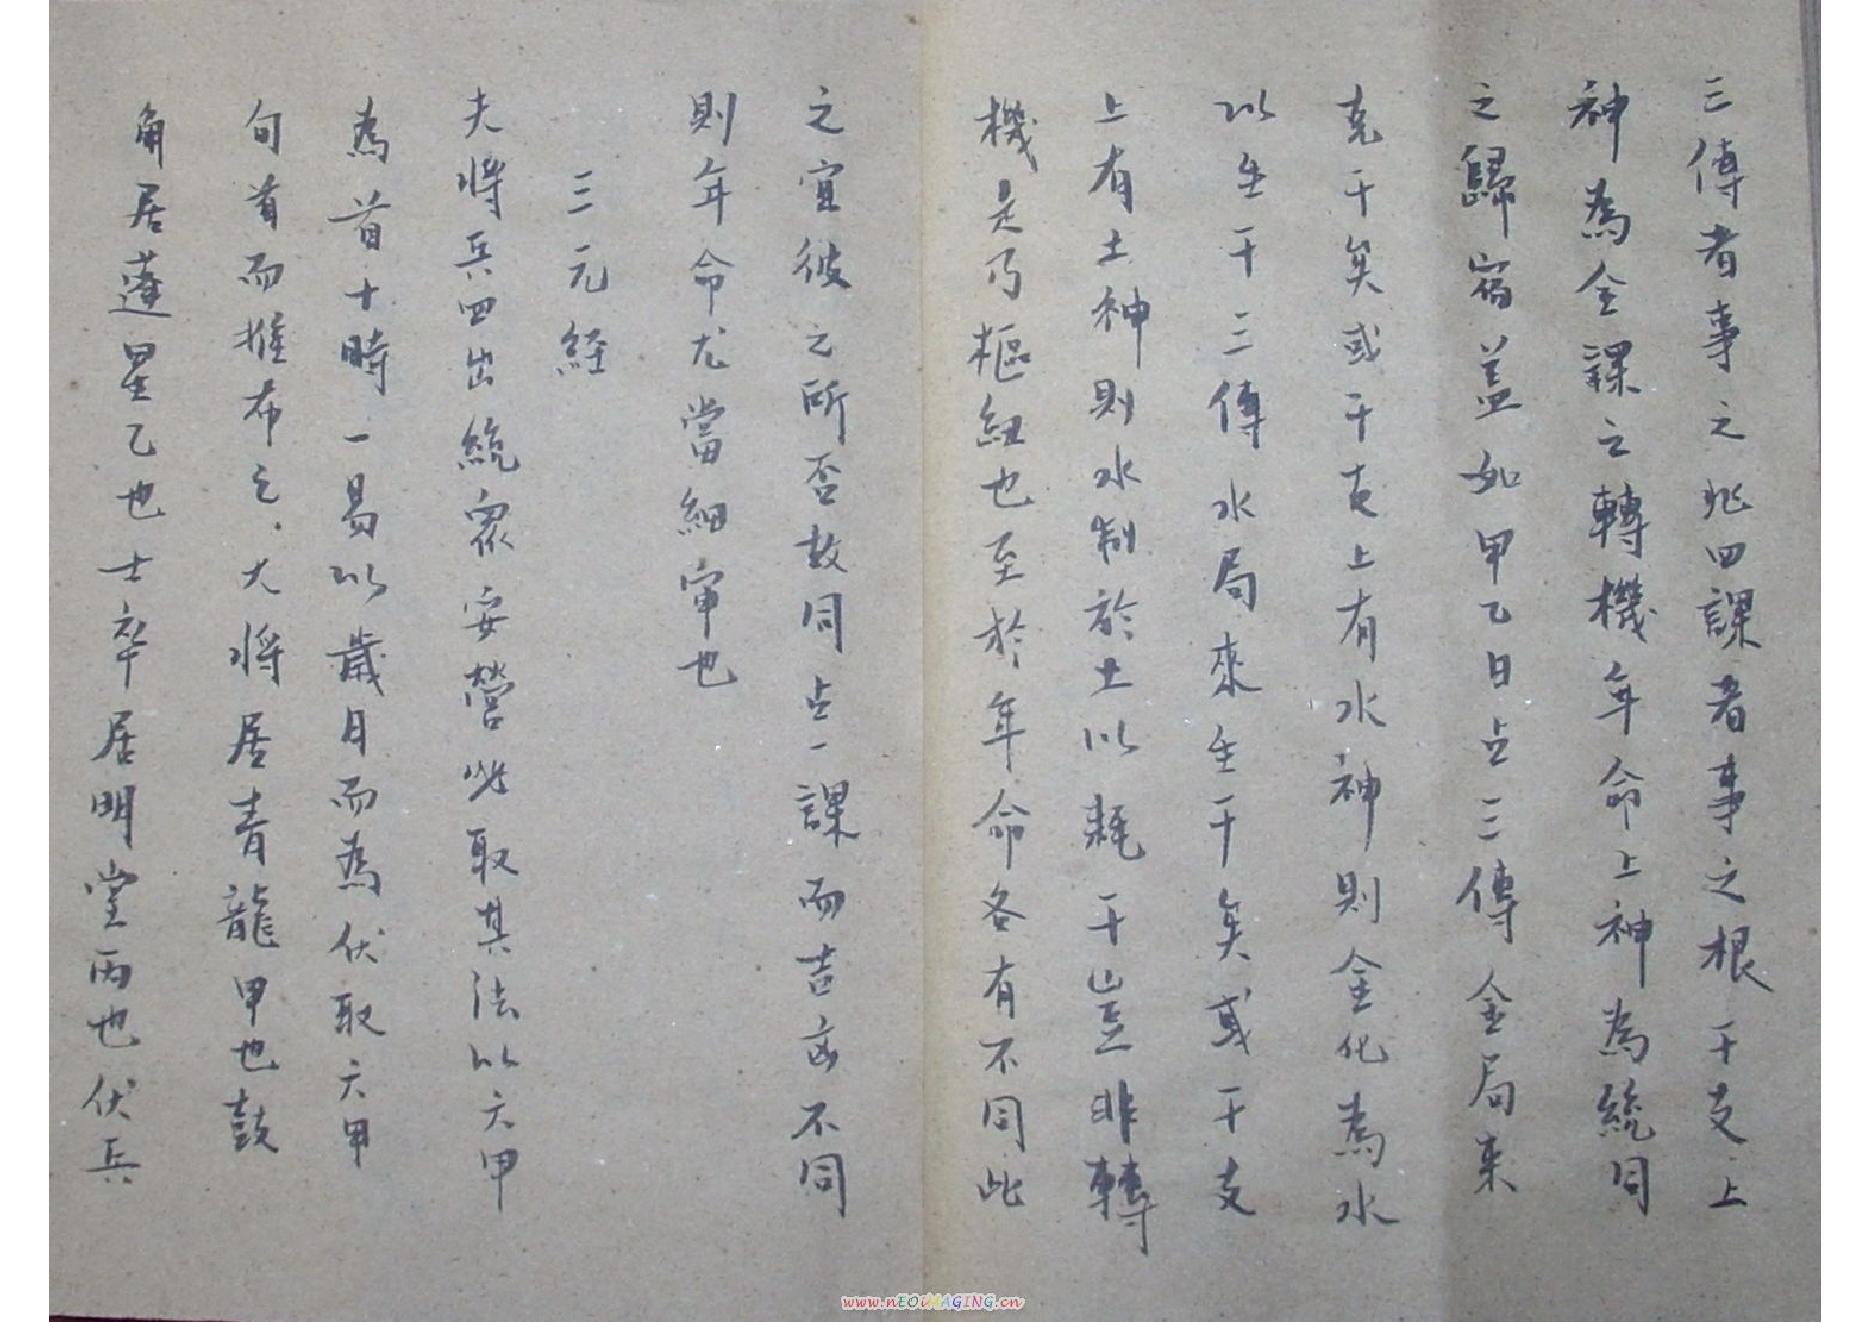 三傳者事之兆四課者事之根干支上
神為全課之轉機年命上神為統同
之歸宿蓋如甲乙日占三傳金局來
克干矣或干支上有水神則金化為水
以生干三傳水局來生干矣或干支
上有土神則水制於土以耗干豈非轉
機是乃樞紐也至於年命各有不同此
之宜彼之所否故同占一課而吉凶不同
則年命尤當細審也
三元經
夫將兵四出統衆安營必取其法以六甲
為首十時一易以歲月而為伏取六甲
旬首而推布之、大將居青龍甲也鼓
角居蓬星乙也士卒居明堂丙也伏兵
www.nEOiMAGING.cn